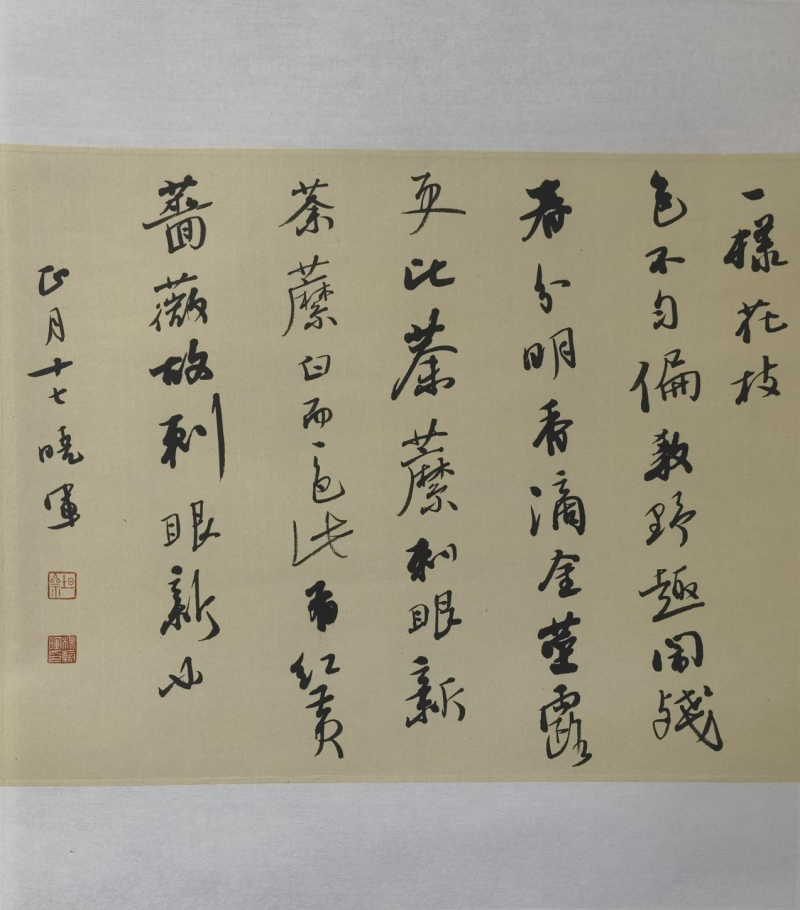 一樣花枝
色不匀偏教野趣鬧殘
春分明香滴金莖露
更比荼蘼刺眼新
荼蘼白而一色此有紅黄
薔薇故刺眼新也
正月十七曉軍